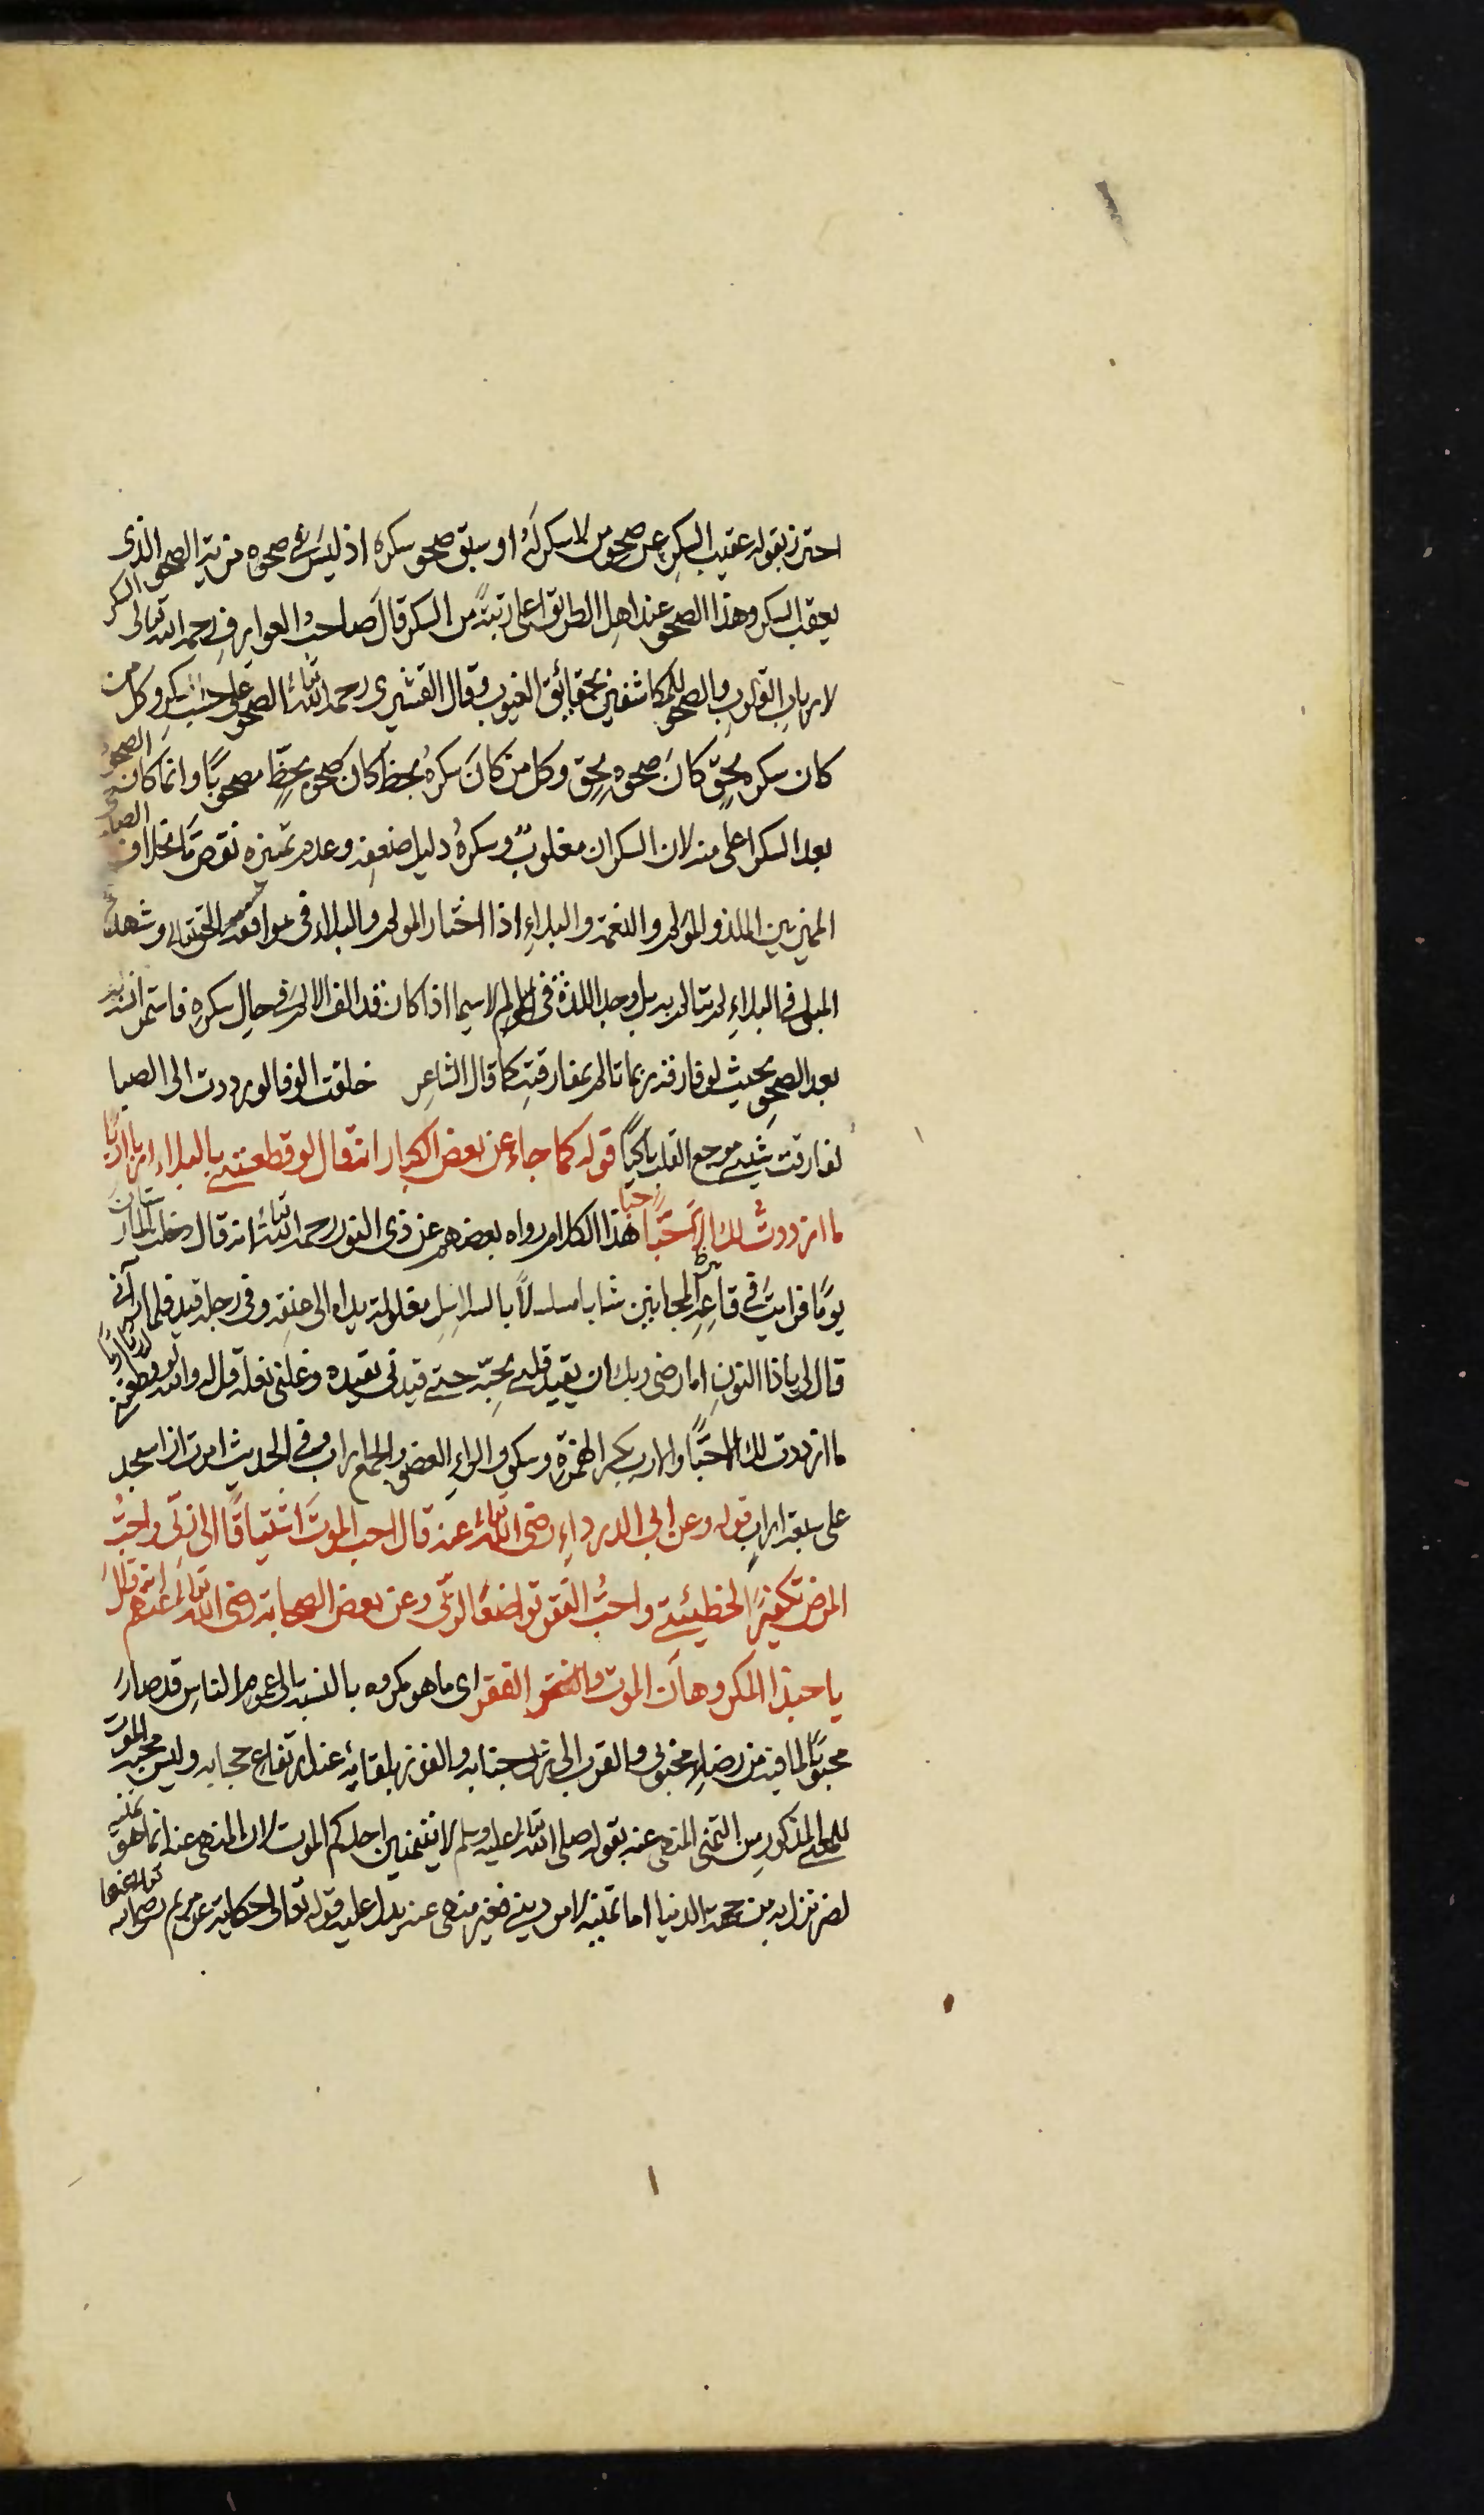 احترز بقوله عقيب السكر عن صحو من لا سكر له او سبق صحو سكره اذ ليس فى صحوه مزية الصحو الذى
يعقب السكر وهذا الصحو عند اهل الطريق اعلى رتبة من السكر قال صاحب العوارف رحمه الله تعالى السكر
لارباب القلوب والصحو للمكاشفين بحقائق الغيوب وقال القشيرى رحمه الله تعالى الصحو على حسب السكر وكل من
كان سكره بحق كان صحوه بحق وكل من كان سكره بحظ كان صحوه بحظ مصحوبا وانما كان الصحو
بعد السكر اعلى منه لان السكران مغلوب وسكره دليل ضعفه وعدم تميزه نقص بخلاف الصاحى
المميز بين الملذ والمؤلم والنعمة والبلاء اذا اختار المولم والبلاء فى موافقة الحق تعالى وشهد
المبلى فى البلاء لم يتالم به بل وجد اللذة فى المولم لا سيما اذا كان قد الف الالم فى حال سكره فاستمر انسه
بعد الصحو بحيث لو فارقه ربما تالم بمفارقته كما قال الشاعر خلقت الوفا لو رددت الى الصبا
لفارقت شيبى موجع القلب باكيا قوله كما جاء عن بعض الكبار انه قال لو قطعتنى بالبلاء اربا اربا
ما ازددت لك الا حبا حبا هذا الكلام رواه بعضهم عن ذى النون رحمه الله تعالى انه قال دخلت المارستان
يوما فرايت فى قاعة المجانين شابا مسلسلا بالسلاسل مغلولة يداه الى عنقه وفى رجله قيد فلما رآنى
قال لى ياذا النون اما رضى ربك ان يقيد قلبى بحبه حتى قيدنى بقيده وغلنى بغله قل له والله لو قطعتنى اربا اربا
ما ازددت لك الا حبا والارب بكسر الهمزة وسكون الراء العضو والجمع اراب وفى الحديث امرت ان اسجد
على سبعة اراب قوله وعن ابى الدرداء رضى الله تعالى عنه قال احب الموت اشتياقا الى ربى واحب
المرض تكفيرا لخطيئتى واحب الفقر تواضعا لربى وعن بعض الصحابة رضى الله تعالى عنهم انه قال
يا حبذا المكروهان الموت والفقر اى ما هو مكروه بالنسبة الى عموم الناس قد صار
محبوبا لما فيه من رضاء محبوبى والقرب الى جنابه والفوز بلقائه عند ارتفاع حجابه وليس محبة الموت
للمعنى المذكور من التمنى المنهى عنه بقوله صلى الله تعالى عليه وسلم لا يتمنين احدكم الموت لان المنهى عنه انما هو تمنيه
لضر نزل به من جهة الدنيا اما تمنيه لامر دينى فغير منهى عنه يدل عليه قوله تعالى حكاية عن مريم